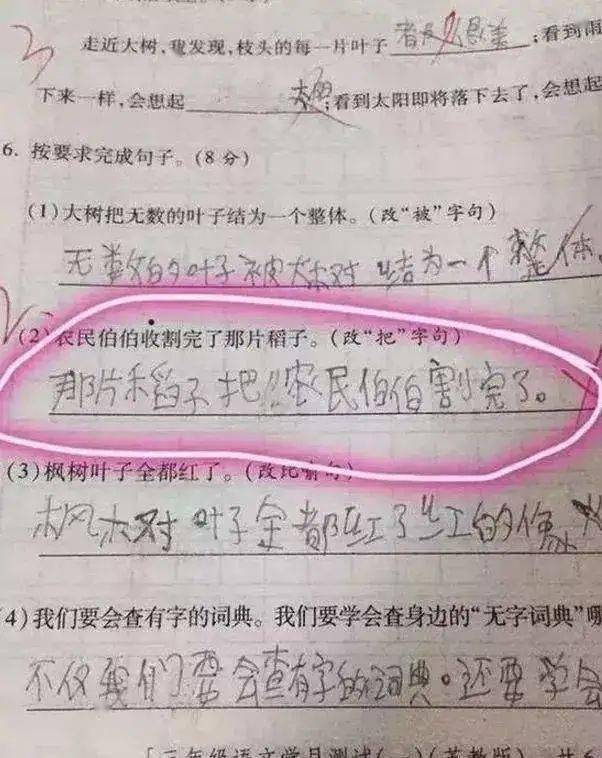 走近大树，我发现，枝头的每一片叶子 ；看到雨
下来一样，会想起 大海；看到太阳即将落下去了，会想起
6. 按要求完成句子。（8分）
（1）大树把无数的叶子结为一个整体。（改“被”字句）
无数的叶子被大树结为一个整体。
（2）农民伯伯收割完了那片稻子。（改“把”字句）
那片稻子把农民伯伯割完了。
（3）枫树叶子全都红了。（改比喻句）
枫树叶子全都红了红的像火
4）我们要会查有字的词典。我们要学会查身边的“无字词典”
不仅我们要会查有字的词典。还要学会
［三年级语文学月测试（一）（苏教版） 共6